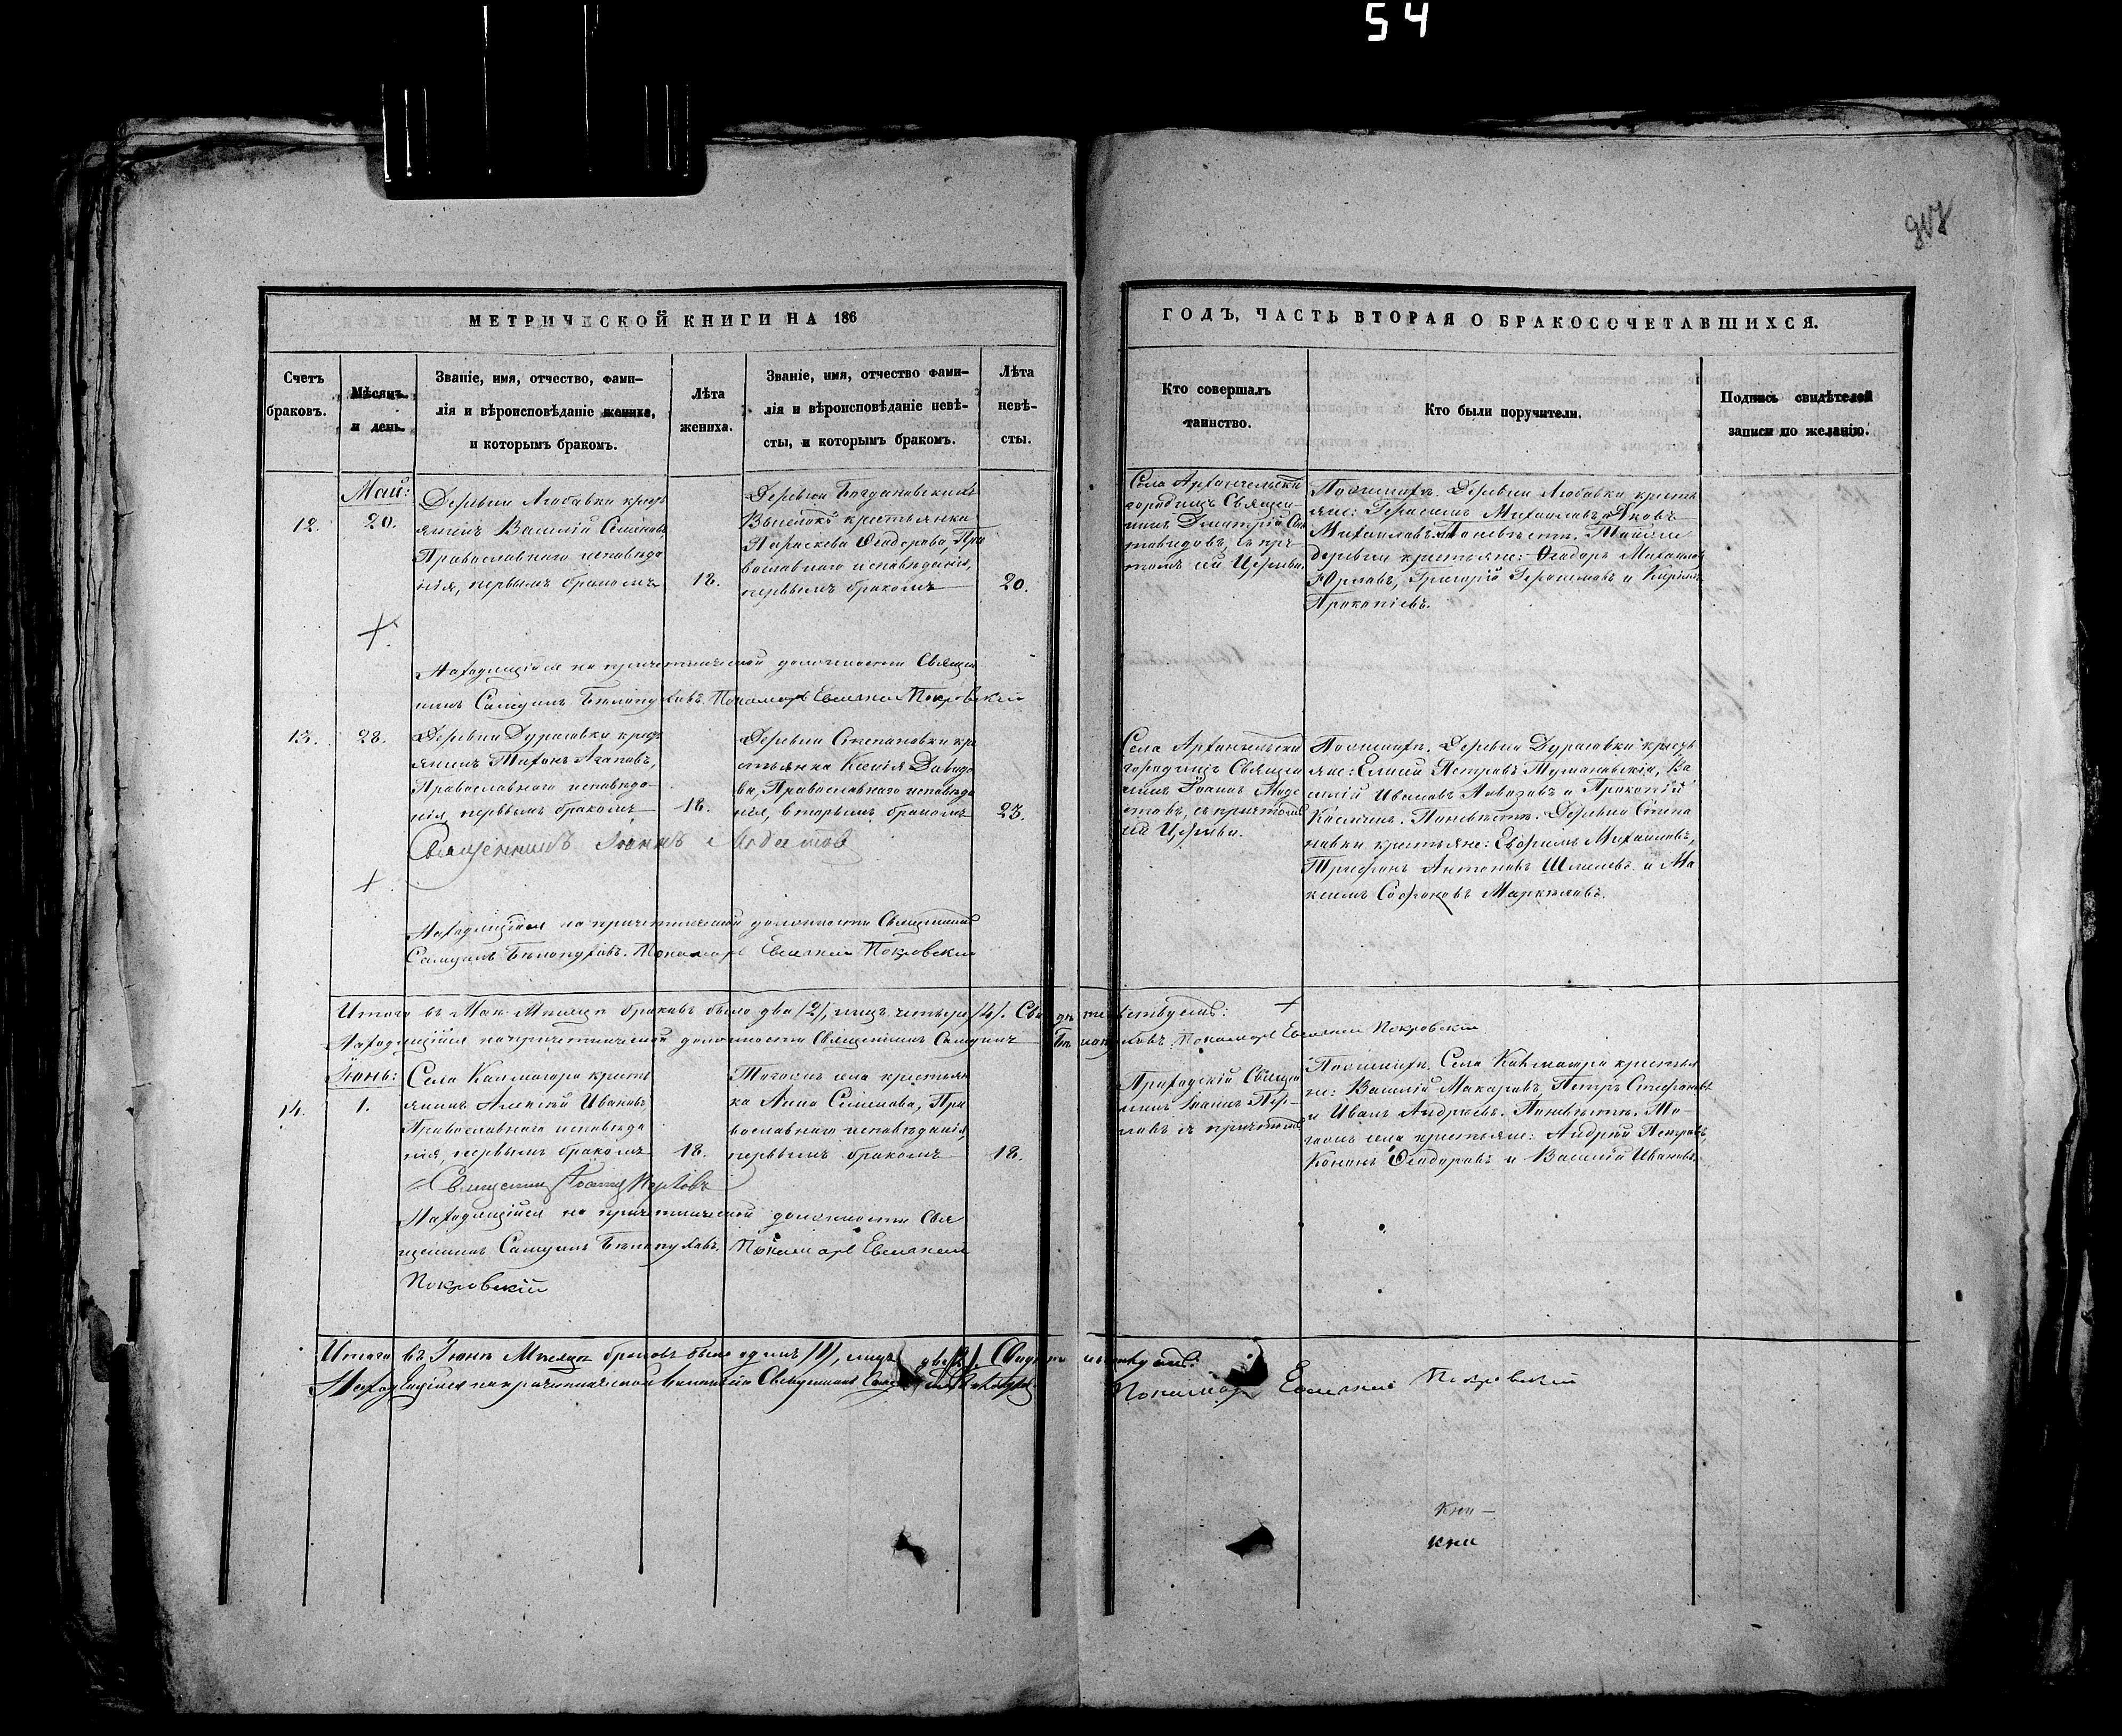 54
МЕТРИЧЕСКОЙ КНИГИ НА 186
ГОДЪ, ЧАСТЬ ВТОРАЯ О БРАКОСОЧЕТАВШИХСЯ.
Счетъ
браковъ.
Мѣсяцъ
и день
Званіе, имя, отчество, фами-
лія и вѣроисповѣданіе жениха,
и которымъ бракомъ.
Лѣта
жениха.
Званіе, имя, отчество фами-
лія и вѣроисповѣданіе невѣ-
сты, и которымъ бракомъ.
Лѣта
невѣ-
сты.
Кто совершалъ
таинство.
Кто были поручители.
Подпись свидѣтелей
записи по желанію.
12.
Май:
20.
Деревни Любавки кресть
янинъ Василій Семеновъ
Православнаго исповѣда
нія, первымъ бракомъ
18.
Деревни Богдановскихъ
Выселокъ крестьянка
Параскева Ѳеодорова, Пра
вославнаго исповѣданія,
первымъ бракомъ
20.
Села Архангельски
городищъ Священ
никъ Димитрій
съ при
томъ ей Церкви.
Поженихѣ. Деревни Любавки кресть
яне: Герасимъ Михаиловъ и Яковъ
Михаиловъ. Поневѣстѣ. Тойже
деревни крестьяне: Ѳеодоръ Михаиловъ
Григорій Герасимовъ и
Прокопіевъ.
Находящійся на причетнической должности Священ
никъ Самуилъ Пономарь Евгеній Покровскій
13.
28.
Деревни Дурасовки кресть
янинъ Тихонъ Агаповъ,
Православнаго исповѣда-
нія, первымъ бракомъ
18.
Деревни Степановки кре
стьянка Ксенія Давидо
ва, Православнаго исповѣда
нія, вторымъ бракомъ
23.
Села Архангельски
городищъ Священ
никъ Іоаннъ Моде
стовъ, съ причтомъ
ей Церкви.
Поженихѣ. Деревни Дурасовки кресть
яне: Елисей Петровъ Тумановскій, Ва
силій Ивановъ и Прокопій
Косминъ. Поневѣстѣ. Деревни Степа
новки крестьяне: Евфимъ Михаиловъ,
Трифонъ Антоновъ и Ма
ксимъ Софоновъ
Священникъ Іоаннъ Модестовъ
Находящійся на причетнической должности Священникъ
Самуилъ Пономарь Евгеній Покровскій
Итого въ Маѣ Мѣсяцѣ браковъ было два /2/, лицъ четыре /4/. Свидѣтельствуемъ:
Находящійся напричетнической должности Священникъ Самуилъ Пономарь Евгеній Покровскій
14.
Іюнь:
1.
Села Канмагора кресть
янинъ Алексѣй Ивановъ
Православнаго исповѣда
нія, первымъ бракомъ
18.
Тогожъ села крестьян
ка Анна Семенова, Пра
вославнаго исповѣданія,
первымъ бракомъ
18.
Приходскій Священ
никъ Іоаннъ
съ причтомъ
Поженихѣ. Села крестья
не: Василій Макаровъ, Петръ Стефановъ
и Иванъ Андреевъ. Поневѣстѣ. То-
гожъ села крестьяне: Андрей Петровъ,
Кононъ Ѳеодоровъ и Василій Ивановъ.
Священникъ Іоаннъ
Находящійся на причетнической должности Свя
щенникъ Самуилъ Пономарь Евгеній
Покровскій
Итого въ Іюнѣ Мѣсяцѣ браковъ было одинъ /1/, лицъ двое /2/. Свидѣтельствуемъ:
Находящійся напричетнической Священникъ
Пономарь Евгеній Покровскій
кни-
кни